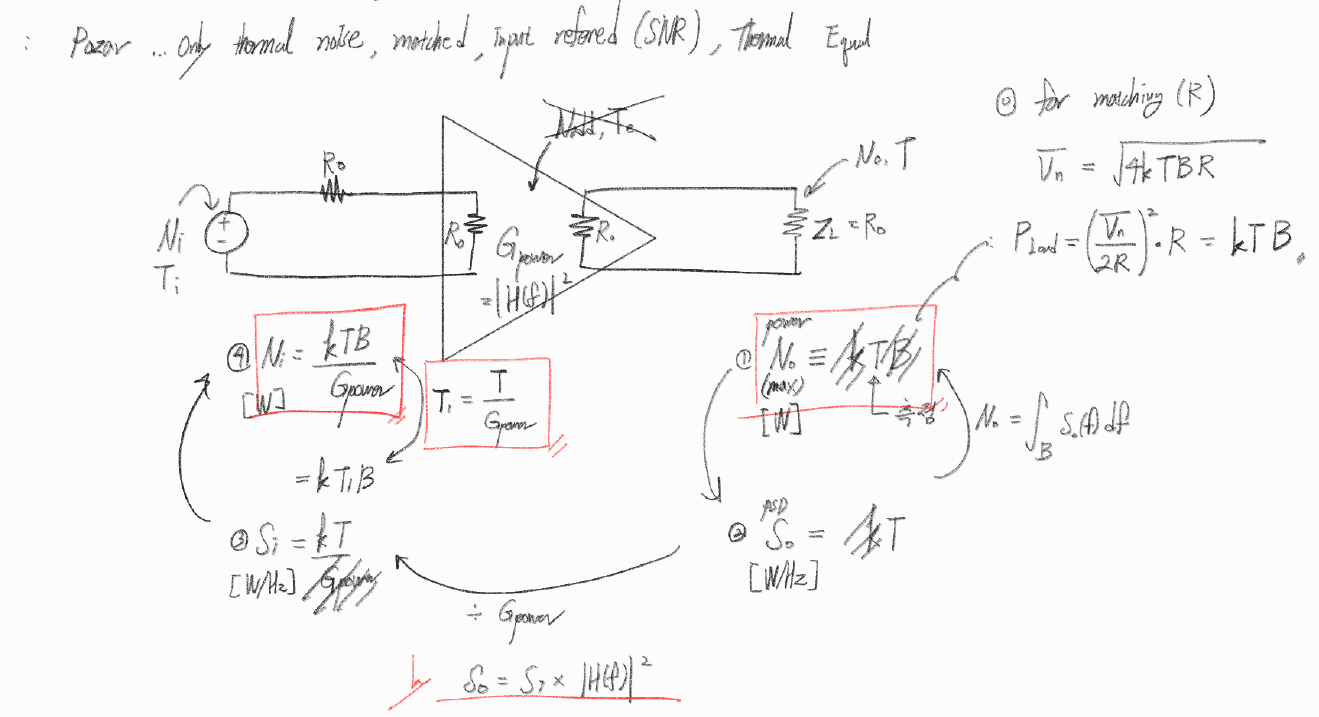 : Pozar ... Only thermal noise, matched, input referred (SNR), Thermal Equal
⓪ for matching (R)
Vn = √4kTBR
∴ Pload = (Vn/2R)² · R = kTB.
Nadd, Te
No, T
Ro
Ni
Ti
+
-
Ro
Gpower
= |H(f)|²
Ro
ZL = Ro
④ Ni = kTB/Gpower
[W]
= kTiB
Ti = T/Gpower
power
① No ≡ kTB
(max)
[W]
측정
No = ∫B So(f) df
③ Si = kT/Gpower
[W/Hz]
PSD
② So = kT
[W/Hz]
÷ Gpower
So = Si × |H(f)|²